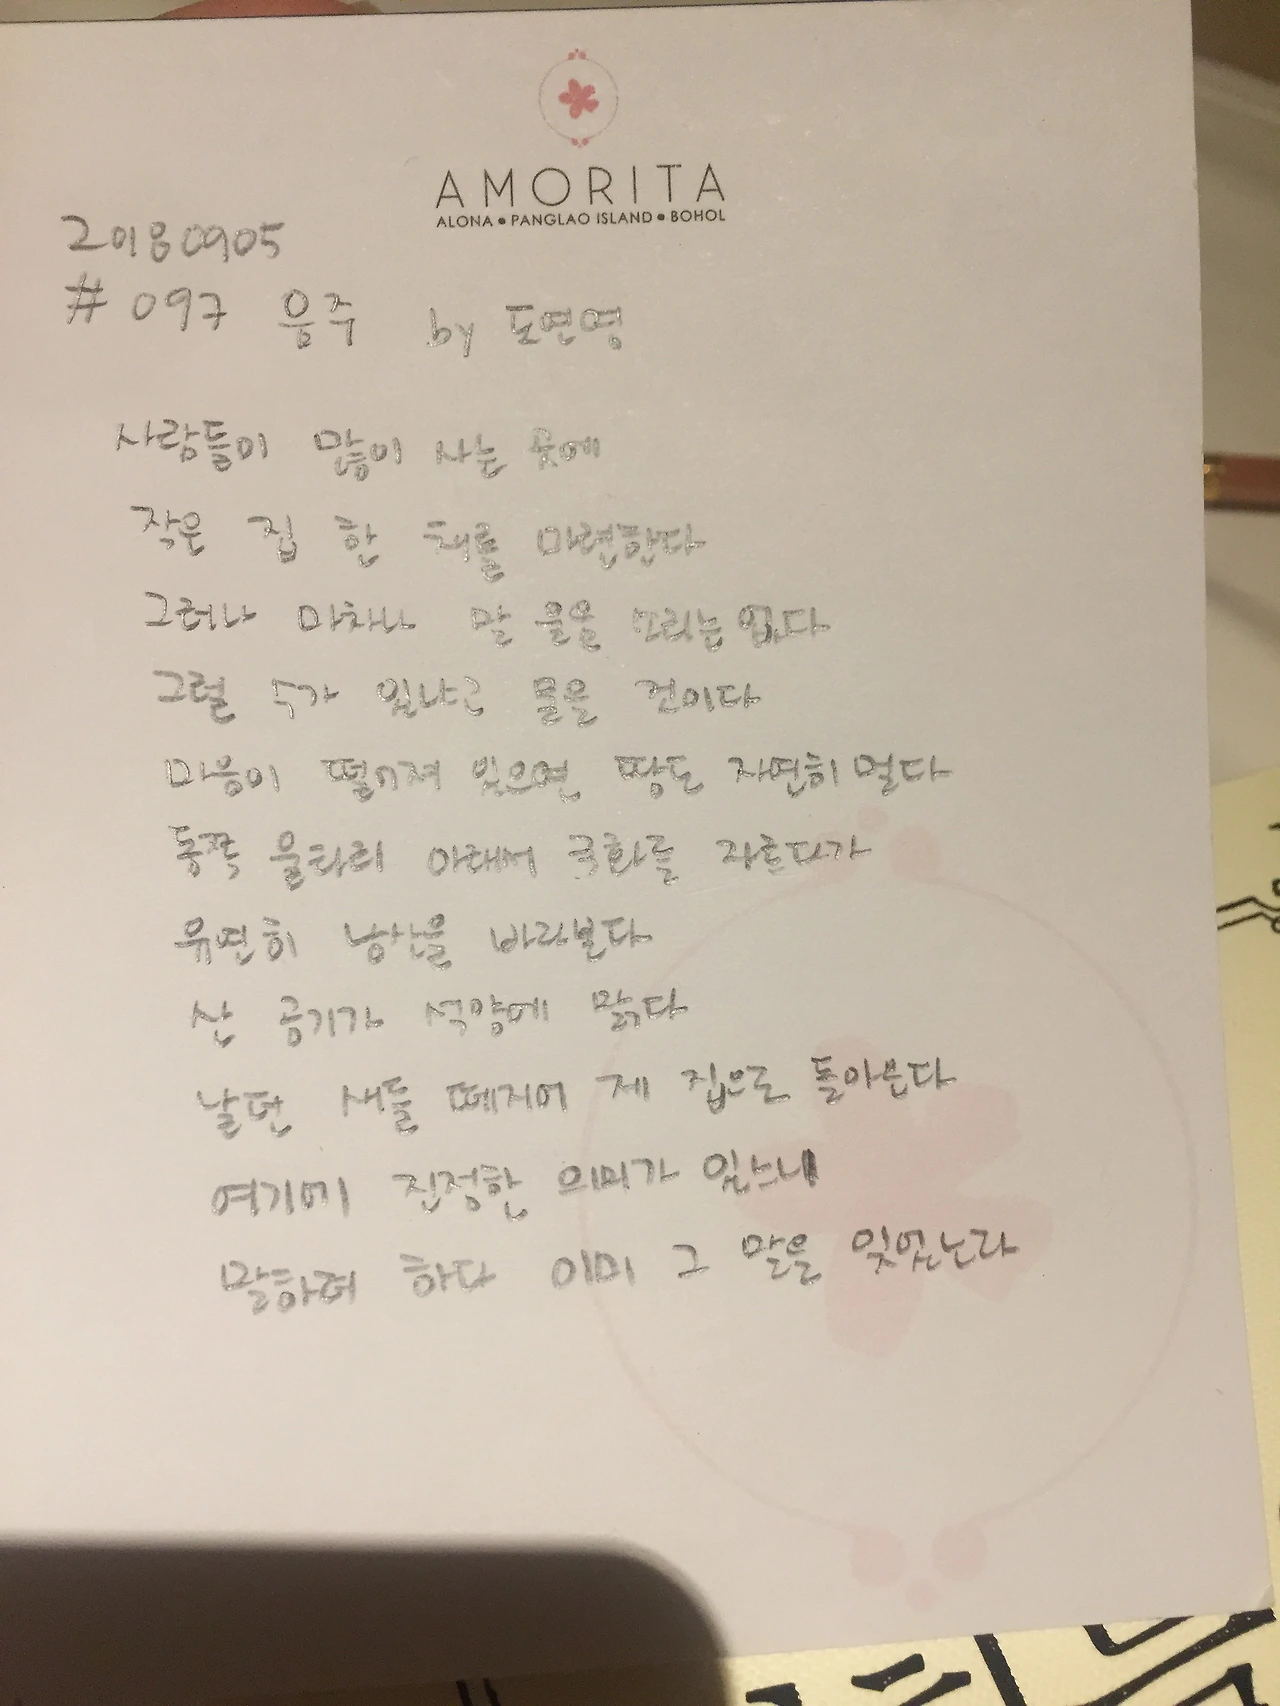 AMORITA
ALONA • PANGLAO ISLAND • BOHOL
20180905
#097 음주 by 도연명
사람들이 많이 사는 곳에
작은 집 한 채를 마련한다
그러나 마차나 말 울음 소리는 없다
그럴 수가 있냐고 물을 것이다
마음이 떨어져 있으면 땅도 자연히 멀다
동쪽 울타리 아래에 국화를 자르다가
유연히 남산을 바라보다
산 공기가 석양에 맑다
날던 새들 떼지어 제 집으로 돌아온다
여기에 진정한 의미가 있느니
말하려 하다 이미 그 말을 잊었노라